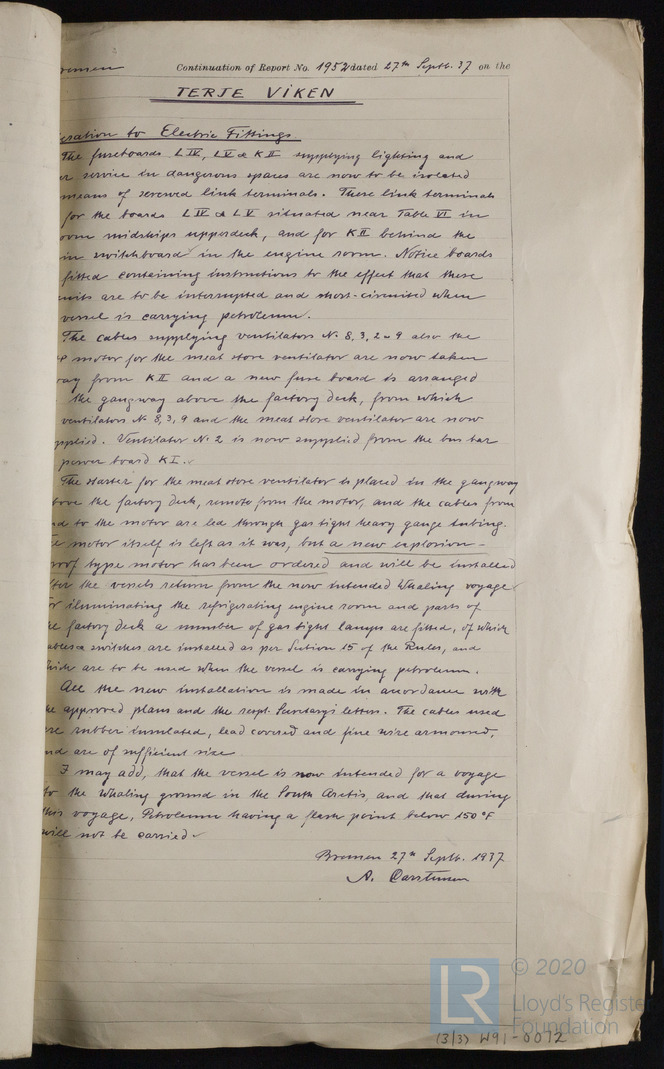 Continuation of Report No. 1952 dated 27th Septb. 37 on the
TERJE VIKEN
to Electric Fittings
The fuseboards L IV, L V & K II supplying lighting and
service in dangerous spaces are now to be isolated
means of screwed link terminals. These link terminals
for the boards L IV & L V situated near Table VI in
midships upperdeck, and for K II behind the
switchboard in the engine room. Notice boards
fitted containing instructions to the effect that these
are to be interrupted and short-circuited when
vessel is carrying petroleum.
The cables supplying ventilators No. 8, 3, 2 & 9 also the
motor for the meat store ventilator are now taken
from K II and a new fuse board is arranged
the gangway above the factory deck, from which
ventilators No 8, 3, 9 and the meat store ventilator are now
Ventilator No. 2 is now supplied from the bus bar
power board K I.
The starter for the meat store ventilator is placed in the gangway
the factory deck, remote from the motor, and the cables from
to the motor are led through gas tight heavy gauge tubing.
motor itself is left as it was, but a new explosion-
type motor has been ordered and will be installed
the vessels return from the now intended Whaling voyage
iluminating the refrigerating engine room and parts of
factory deck a number of gas tight lamps are fitted, of which
switches are installed as per Section 15 of the Rules, and
are to be used when the vessel is carrying petroleum.
All the new installation is made in accordance with
approved plans and the respt. Secretary's letters. The cables used
rubber insulated, lead covered and fine wire armoured,
are of sufficient size
I may add, that the vessel is now intended for a voyage
to the Whaling ground in the South Arctis, and that during
this voyage, Petroleum having a flash point below 150°F
will not be carried
Bremen 27th Septb. 1937
A. Carstensen
LR
© 2020
Lloyd's Register
Foundation
(3/3) W91-0072